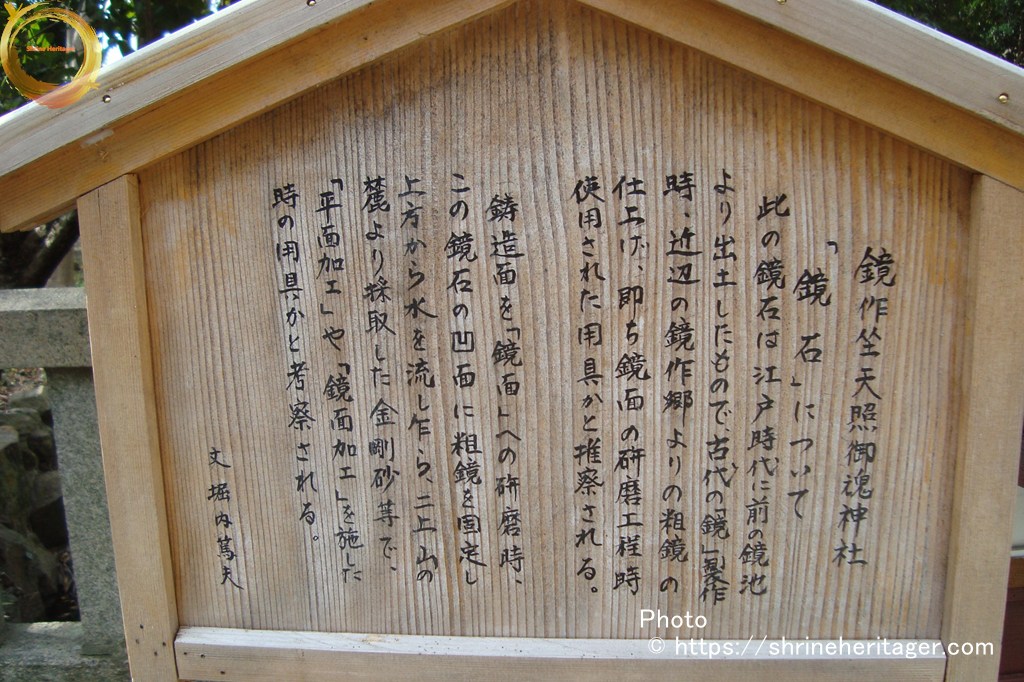 鏡作坐天照御魂神社
「鏡石」について
此の鏡石は江戸時代に前の鏡池
より出土したもので、古代の「鏡」製作
時、近辺の鏡作郷よりの粗鏡の
仕上げ、即ち鏡面の研磨工程時
使用された用具かと推察される。
鋳造面を「鏡面」への研磨時、
この鏡石の凹面に粗鏡を固定し
上方から水を流し乍ら、二上山の
麓より採取した金剛砂等で、
「平面加工」や「鏡面加工」を施した
時の用具かと考察される。
文 堀内篤夫
Shrine Heritager
Photo
© https://shrineheritager.com